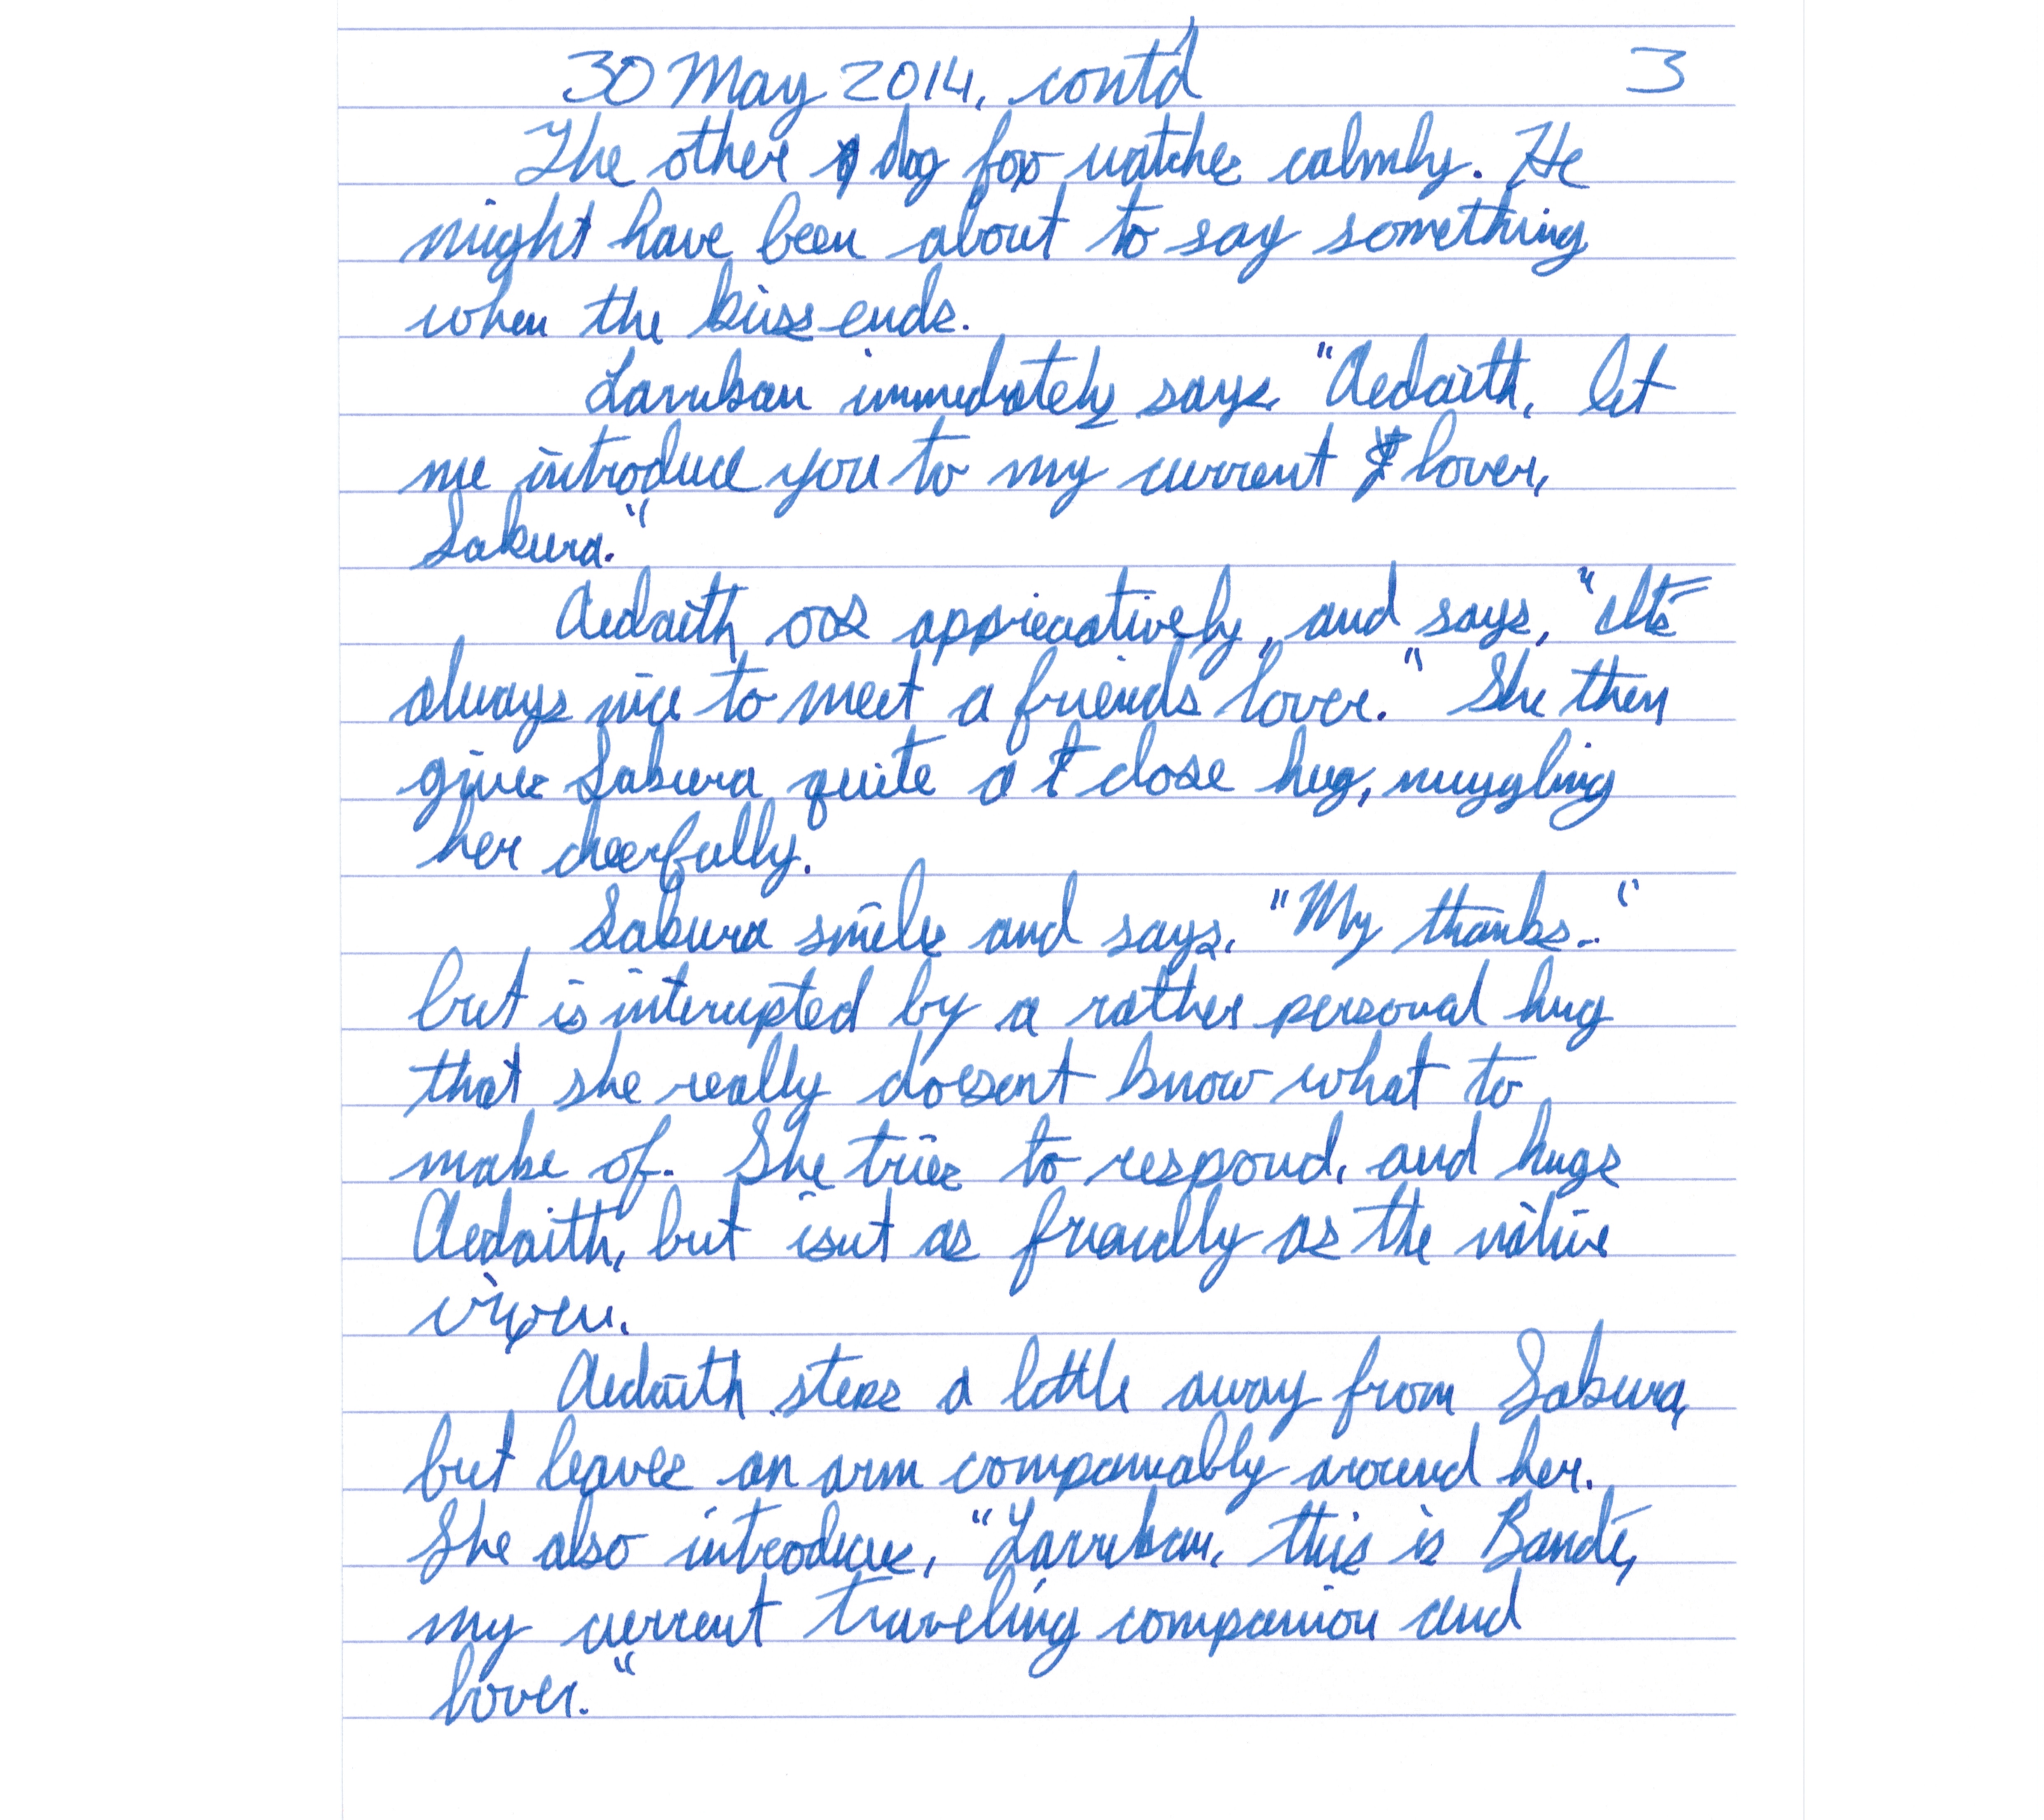 30 May 2014, contd 3
The other dog fox watches calmly. He
might have been about to say something
when the kiss ends.
Larriban immediately says, "Aedaith, let
me introduce you to my current lover,
Sakura."
Aedaith oos appreciatively, and says, "It's
always nice to meet a friend's lover." She then
gives Sakura quite a close hug, nuggling
her cheerfully.
Sakura smiles and says, "My thanks-"
but is interupted by a rather personal hug
that she really doesn't know what to
make of. She tries to respond, and hugs
Aedaith, but isn't as friendly as the native
vixen.
Aedaith steps a little away from Sakura,
but leaves an arm companiably around her.
She also introduces, "Larriban, this is Bande,
my current traveling companion and
lover."